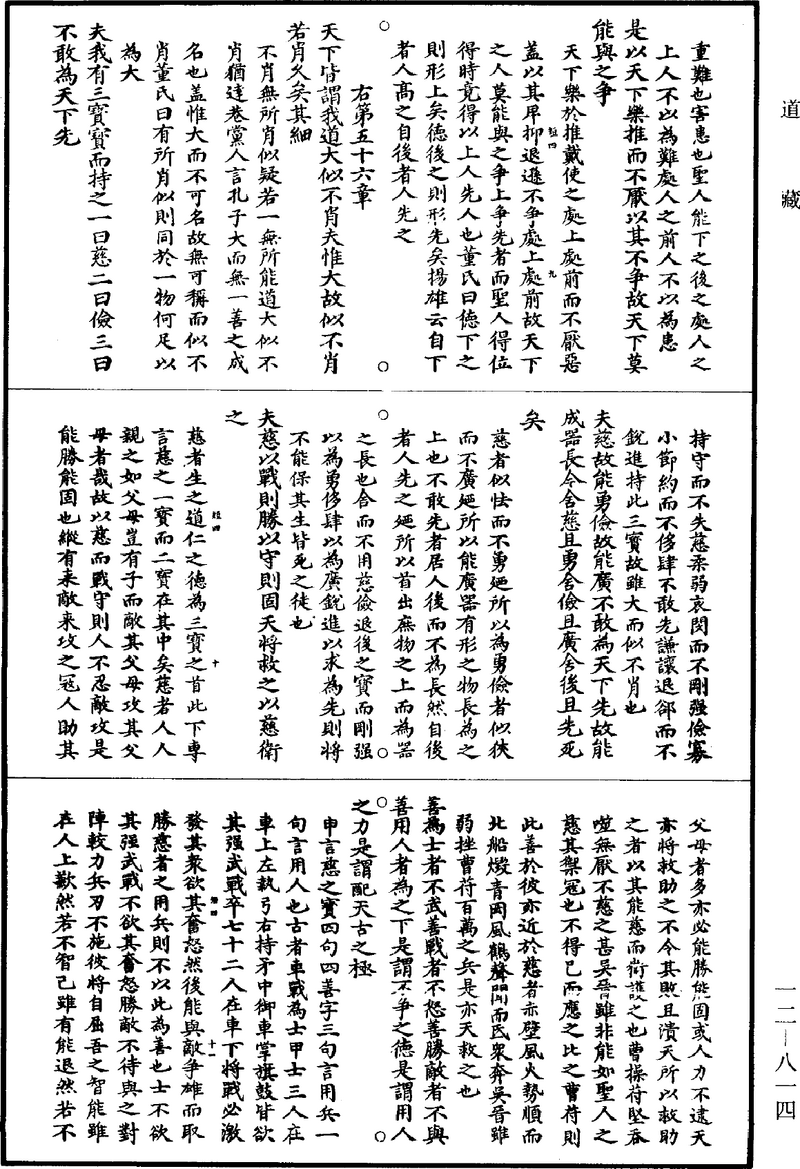 道藏
重難也害患也聖人能下之後之處人之
上人不以為難處人之前人不以為患
是以天下樂推而不厭以其不爭故天下莫
能與之爭
天下樂於推戴使之處上處前而不厭惡
蓋以其卑抑退遜不爭處上處前故天下
之人莫能與之爭上爭先者而聖人得位
得時竟得以上人先人也董氏曰德下之
則形上矣德後之則形先矣揚雄云自下
者人高之自後者人先之
右第五十六章
天下皆謂我道大似不肖夫惟大故似不肖
若肖久矣其細
不肖無所肖似疑若一無所能道大似不
肖猶達巷黨人言孔子大而無一善之成
名也盖惟大而不可名故無可稱而似不
肖董氏曰有所肖似則同於一物何足以
為大
夫我有三寶寶而持之一曰慈二曰儉三曰
不敢為天下先
持守而不失慈柔弱哀閔而不剛强儉寡
小節約而不侈肆不敢先謙讓退郤而不
銳進持此三寶故雖大而似不肖也
夫慈故能勇儉故能廣不敢為天下先故能
成器長今舍慈且勇舍儉且廣舍後且先死
矣
慈者似怯而不勇廼所以為勇儉者似狹
而不廣廼所以能廣器有形之物長為之
上也不敢先者居人後而不為長然自後
者人先之廼所以首出庶物之上而為器
之長也舍而不用慈儉退後之寶而剛强
以為勇侈肆以為廣銳進以求為先則將
不能保其生皆死之徒也
夫慈以戰則勝以守則固天將救之以慈衛
之
慈者生之道仁之德為三寶之首此下專
言慈之一寶而二寶在其中矣慈者人人
親之如父母豈有子而敵其父母攻其父
母者哉故以慈而戰守則人不忍敵攻是
能勝能固也縱有來敵來攻之冦人助其
父母者多亦必能勝能固或人力不逮天
亦將救助之不令其敗且潰天所以救助
之者以其能慈而衛護之也曹操苻堅吞
噬無厭不慈之甚吳晉雖非能如聖人之
慈其禦冦也不得已而應之比之曹苻則
此善於彼亦近於慈者赤壁風火勢順而
北船燬青岡風鶴聲聞而氐衆奔吳晉雖
弱挫曹苻百萬之兵是亦天救之也
善為士者不武善戰者不怒善勝敵者不與
善用人者為之下是謂不爭之德是謂用人
之力是謂配天古之極
申言慈之寶四句四善字三句言用兵一
句言用人也古者車戰為士甲士三人在
車上左執弓右持矛中御車掌旗鼓皆欲
其强武戰卒七十二人在車下將戰必激
發其衆欲其奮怒然後能與敵爭雄而取
勝慈者之用兵則不以此為善也士不欲
其强武戰不欲其奮怒勝敵不待與之對
陣較力兵刃不施彼將自屈吾之智能雖
在人上歉然若不智己雖有能退然若不
短四
九
短四
十
短四
十一
一二—八一四